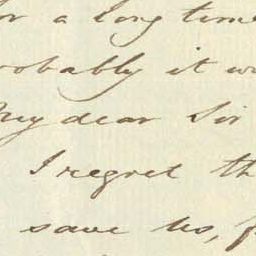 for a long time
probably it w
My dear Sir
I regret th
save us, f